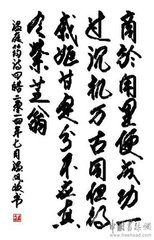 商於甪里便成功一
寸沉机万古同但得
戚姬甘定分不应真
有紫芝翁
温庭筠诗四皓二〇一四年七月